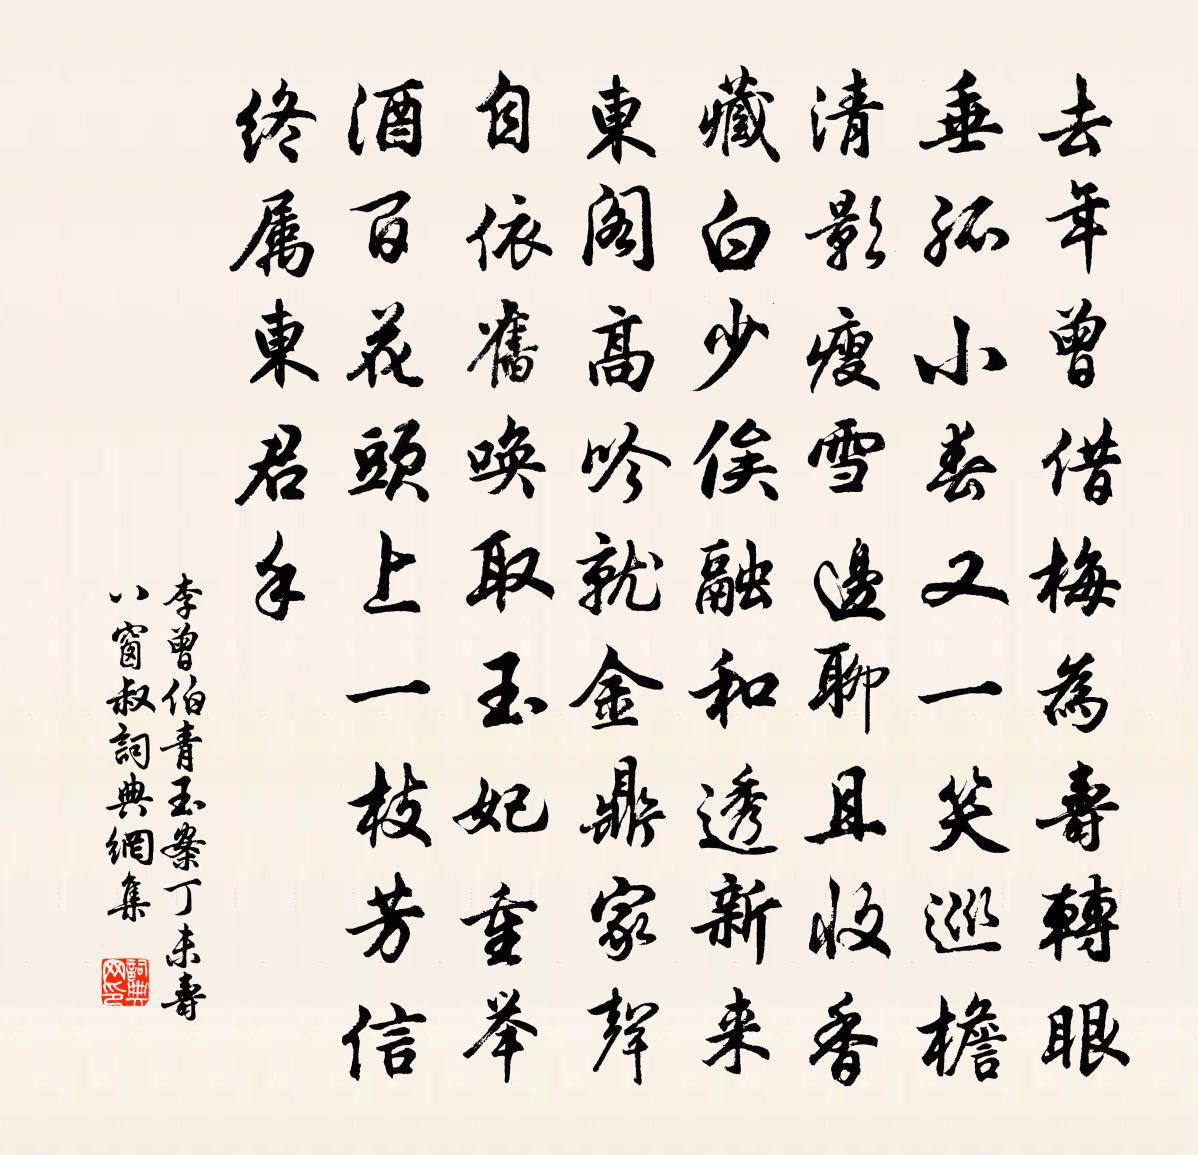 去年曾借梅為壽轉眼
垂弧小春又一笑巡檐
清影瘦雪邊聊且收香
藏白少俟融和透新来
東阁高吟就金鼎家聲
自依舊喚取玉妃重举
酒百花頭上一枝芳信
終属東君手
李曾伯青玉案丁未壽
八窗叔詞典網集
詞典
网印